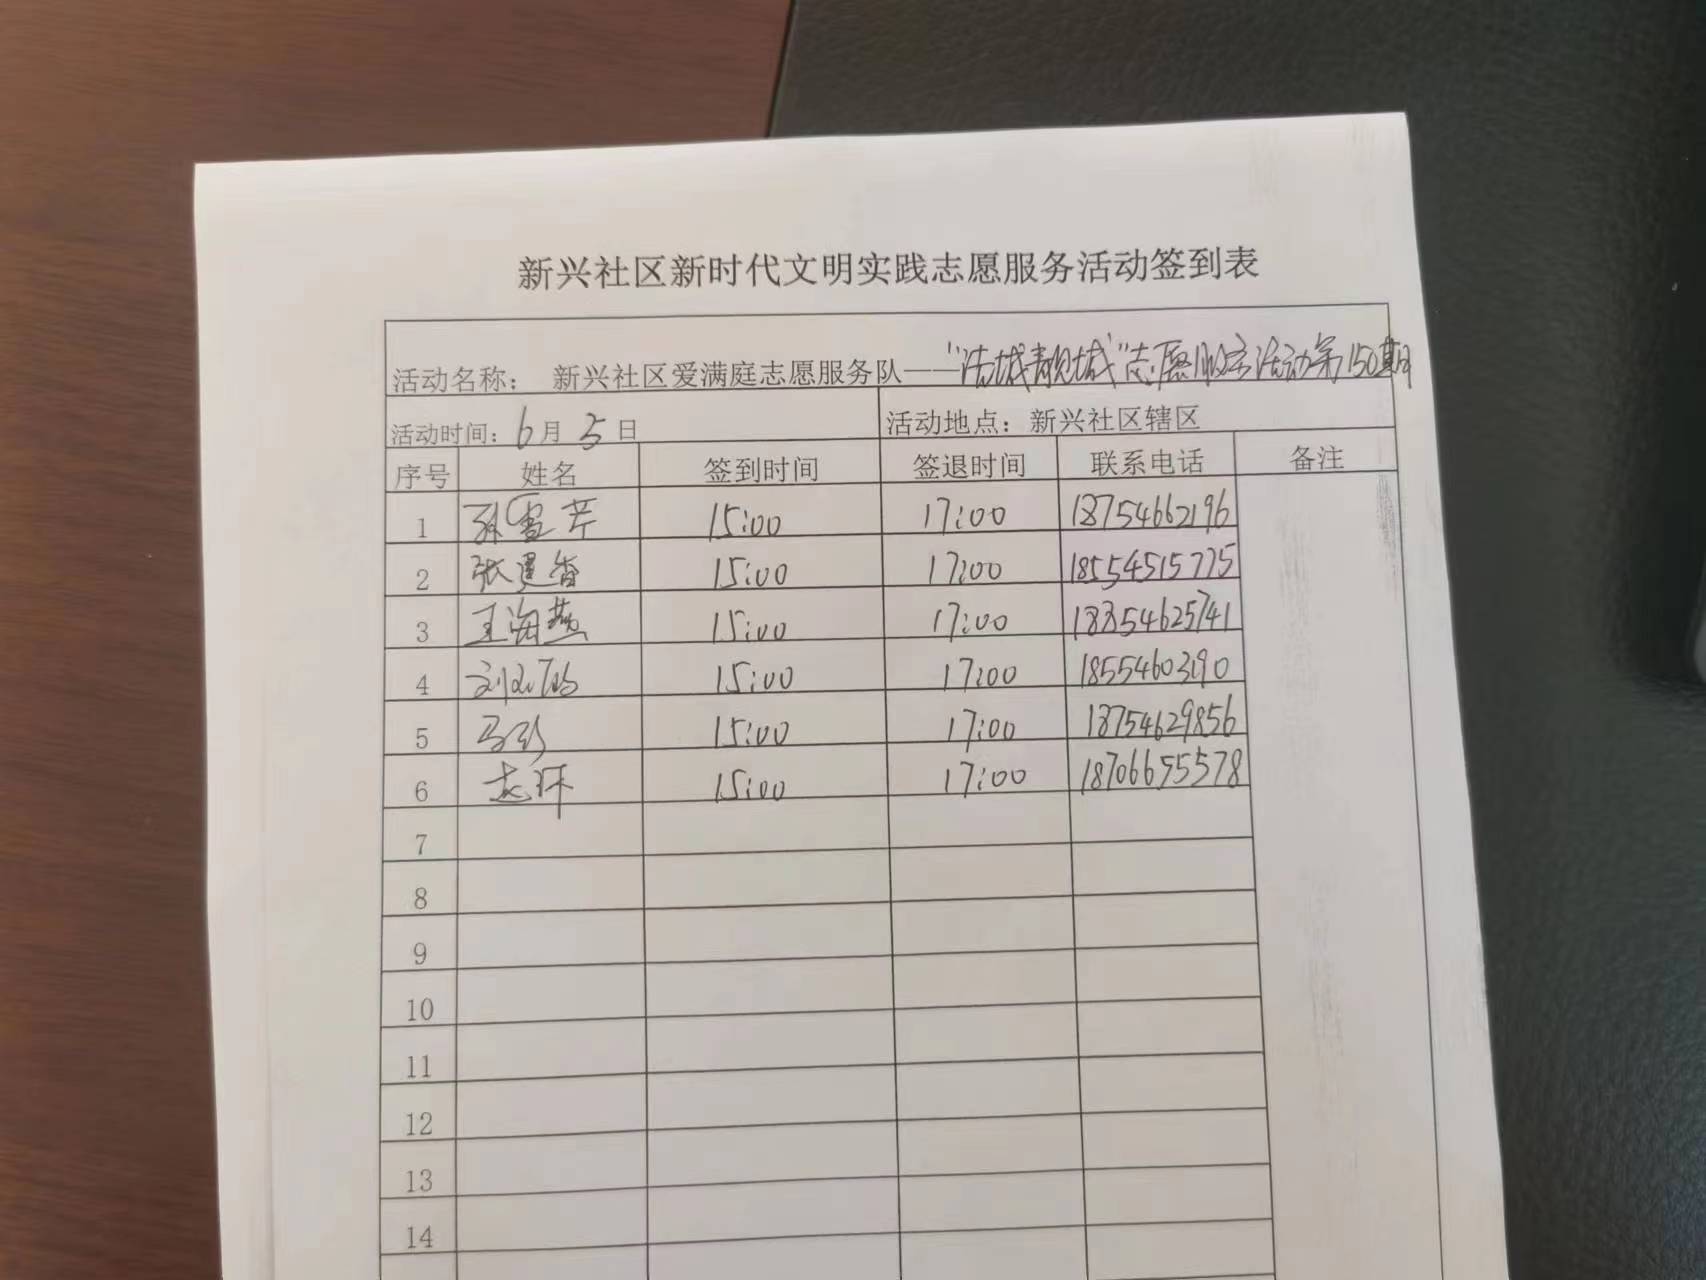 新兴社区新时代文明实践志愿服务活动签到表
活动名称： 新兴社区爱满庭志愿服务队——“洁城靓城”志愿服务活动第150期
活动时间：6月5日 活动地点：新兴社区辖区
序号 姓名 签到时间 签退时间 联系电话 备注
1 孙雪芹 15:00 17:00 18754662196
2 张建香 15:00 17:00 18554515775
3 王海燕 15:00 17:00 18354625741
4 刘 15:00 17:00 18554603190
5 马 15:00 17:00 18754629856
6 15:00 17:00 18706655578
7
8
9
10
11
12
13
14